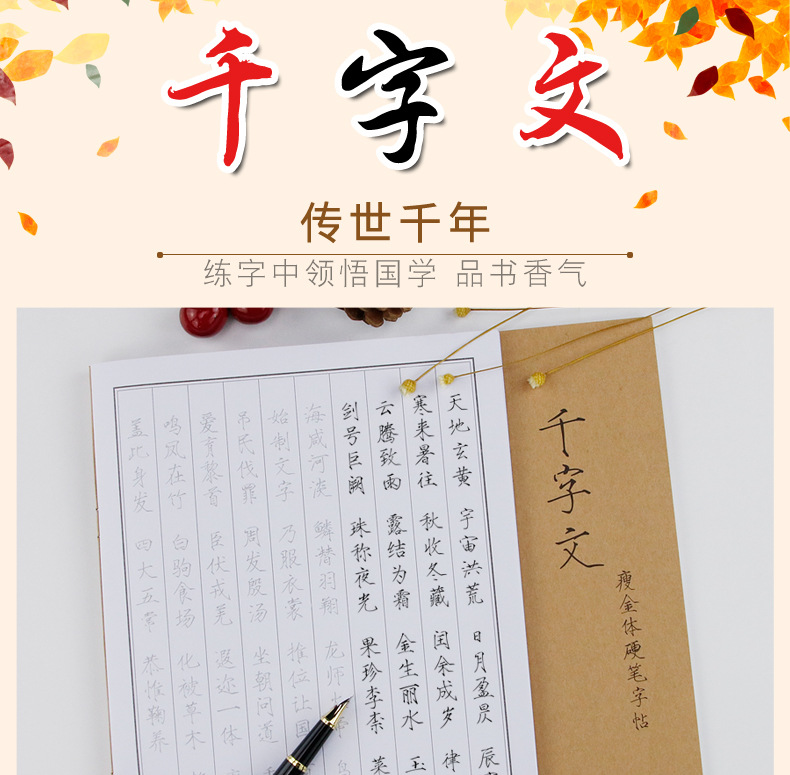 千字文
传世千年
练字中领悟国学 品书香气
千字文
瘦金体硬笔字帖
天地玄黄 宇宙洪荒 日月盈昃 辰
寒来暑往 秋收冬藏 闰余成岁 律
云腾致雨 露结为霜 金生丽水 玉
剑号巨阙 珠称夜光 果珍李柰 菜
海咸河淡 鳞潜羽翔 龙师
始制文字 乃服衣裳 推位让国
吊民伐罪 周发殷汤 坐朝问道
爱育黎首 臣伏戎羌 遐迩一体
鸣凤在竹 白驹食场 化被草木
盖此身发 四大五常 恭惟鞠养